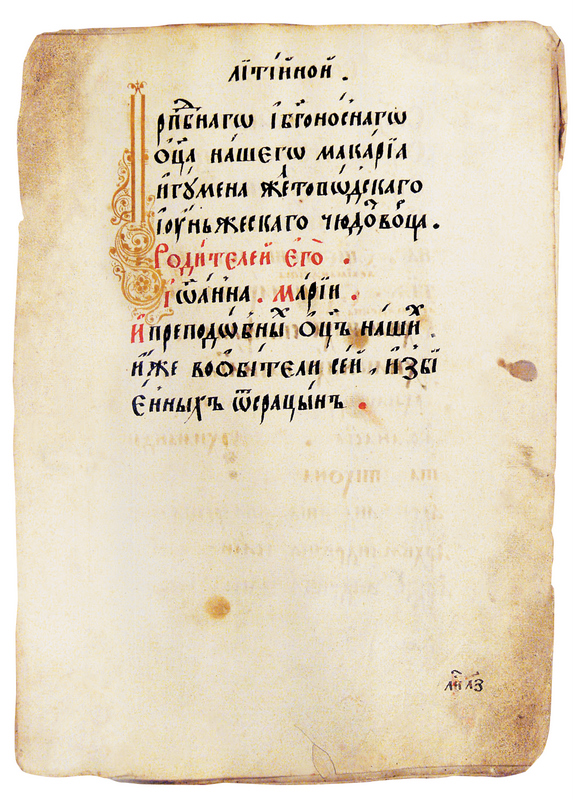 лїтїйной .
Прпⷣбнагѡ і бг҃оноснагѡ
ѻц҃а нашегѡ макарїа
игꙋмена желтоводскаго
і оуньжескаго чюдотворца .
Родителей єгѡ .
Іѡанна . Марїи .
И преподѡбныⷯ ѻц҃ъ нашиⷯ .
иже во ѻбители сей , избї
енныхъ ѿ срацынъ .